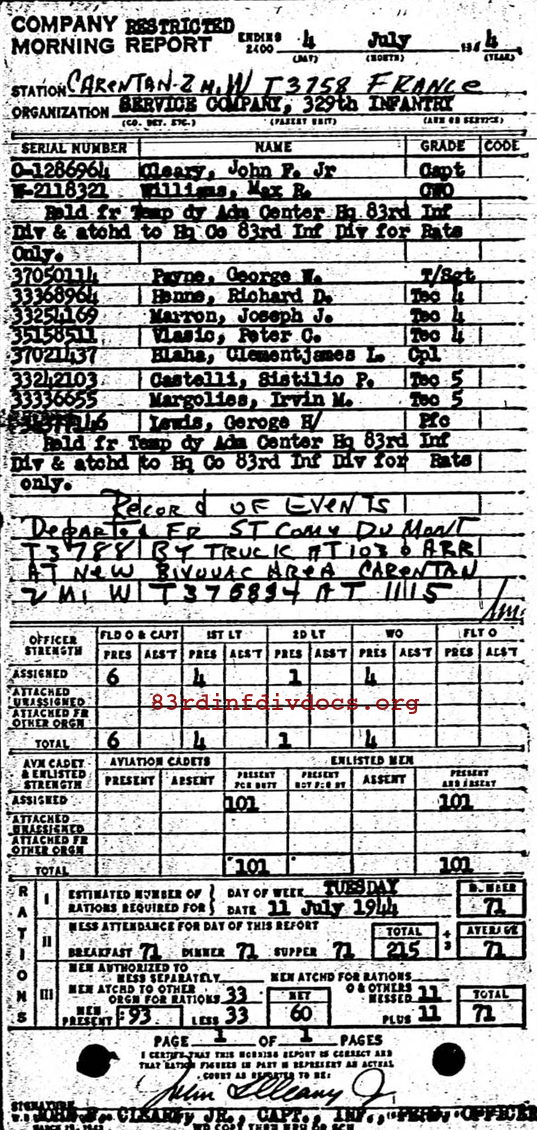 COMPANY RESTRICTED
MORNING REPORT ENDING 2400 4 July 1944
(DAY) (MONTH) (YEAR)
STATION CARENTAN-2 MI. W T3758 FRANCE
ORGANIZATION SERVICE COMPANY, 329th INFANTRY
(CO. DET. ETC.) (PARENT UNIT) (ARM OR SERVICE)
SERIAL NUMBER NAME GRADE CODE
O-1286964 Cleary, John F. Jr Capt
W-2118321 Williams, Max R. CWO
Reld fr Temp dy Adm Center Hq 83rd Inf
Div & atchd to Hq Co 83rd Inf Div for Rats
Only.
37050114 Payne, George W. T/Sgt
33368964 Henne, Richard D. Tec 4
33254169 Marron, Joseph J. Tec 4
35158511 Vlasic, Peter C. Tec 4
37021437 Blaha, Clementjames L. Cpl
33242103 Castelli, Sistilio P. Tec 5
33336655 Margolies, Irvin M. Tec 5
Lewis, Geroge H/ Pfc
Reld fr Temp dy Adm Center Hq 83rd Inf
Div & atchd to Hq Co 83rd Inf Div for Rats
only.
RECORD OF EVENTS
DEPARTED FR ST COMY DU MONT
T3788 BY TRUCK AT 1030 ARR
AT NEW BIVOUAC AREA CARENTAN
2 MI W T375894 AT 1115
OFFICER STRENGTH FLD O & CAPT 1ST LT 2D LT WO FLT O
PRES ABS'T PRES ABS'T PRES ABS'T PRES ABS'T PRES ABS'T
ASSIGNED 6 4 1 4
ATTACHED UNASSIGNED
ATTACHED FR OTHER ORGN
83rdinfdivdocs.org
TOTAL 6 4 1 4
AVN CADET & ENLISTED STRENGTH AVIATION CADETS ENLISTED MEN
PRESENT ABSENT PRESENT FOR DUTY PRESENT NOT FOR DY ABSENT PRESENT AND ABSENT
ASSIGNED 101 101
ATTACHED UNASSIGNED
ATTACHED FR OTHER ORGN
TOTAL 101 101
RATIONS
I ESTIMATED NUMBER OF RATIONS REQUIRED FOR DAY OF WEEK TUESDAY NUMBER
DATE 11 July 1944 71
II MESS ATTENDANCE FOR DAY OF THIS REPORT TOTAL ÷ 3 AVERAGE
BREAKFAST 71 DINNER 71 SUPPER 71 215 71
III MEN AUTHORIZED TO MESS SEPARATELY MEN ATCHD FOR RATIONS
MEN ATCHD TO OTHER ORGN FOR RATIONS 33 NET O & OTHERS MESSED 11 TOTAL
MEN PRESENT 93 LESS 33 60 PLUS 11 71
PAGE 1 OF 1 PAGES
I CERTIFY THAT THIS MORNING REPORT IS CORRECT AND
THAT RATION FIGURES IN PART III REPRESENT AN ACTUAL
COUNT AS REPORTED TO ME:
John F Cleary Jr
SIGNATURE
JOHN F. CLEARY JR., CAPT., INF., PERS. OFFICER